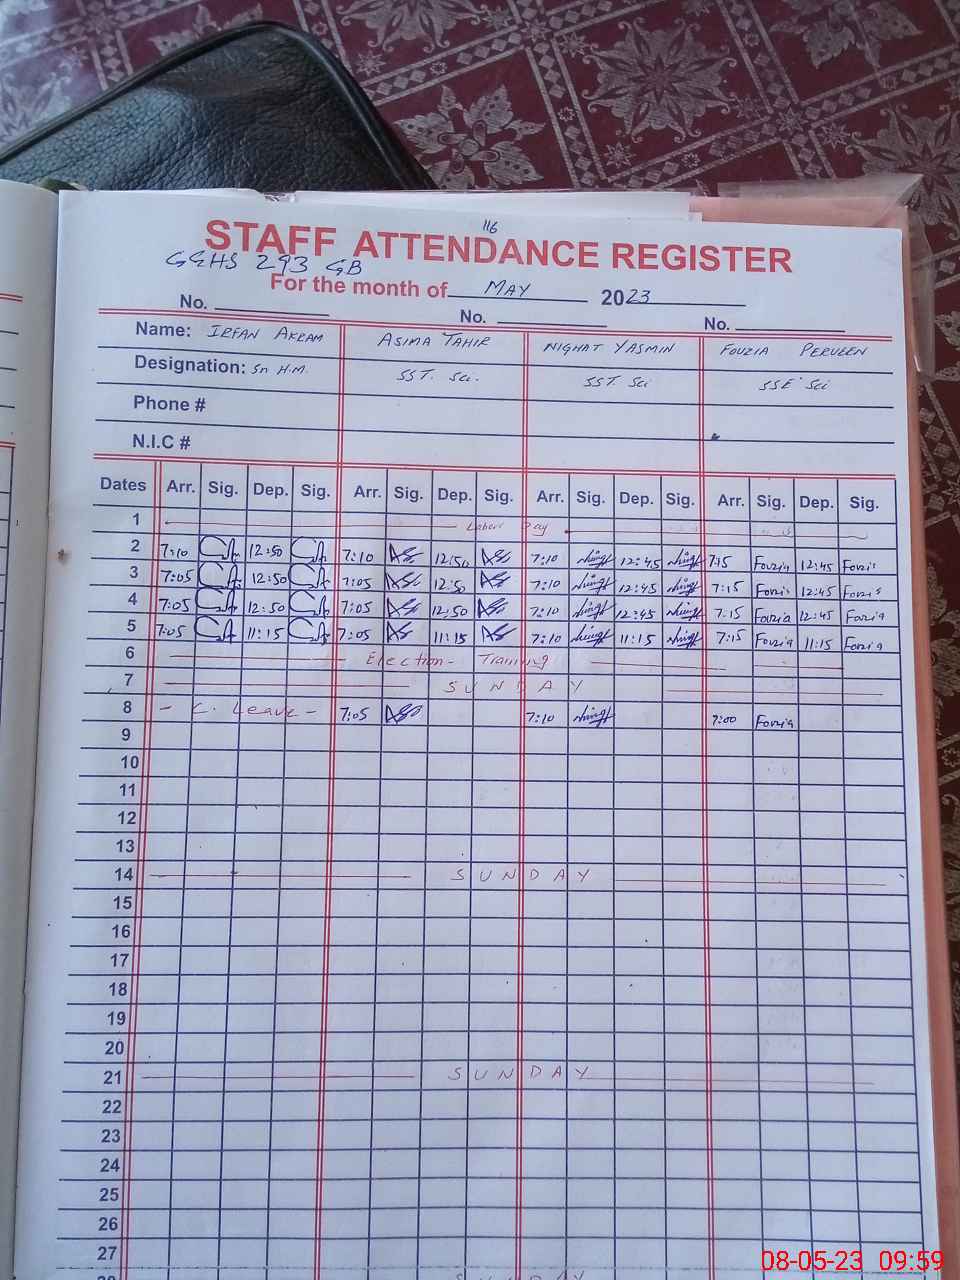 116
STAFF ATTENDANCE REGISTER
GGHS 293 GB
For the month of MAY 2023
No. No. No.
Name: IRFAN AKRAM ASIMA TAHIR NIGHAT YASMIN FOUZIA PERVEEN
Designation: Sn H.M. SST. Sci. SST. Sci SSE Sci
Phone #
N.I.C #
Dates Arr. Sig. Dep. Sig. Arr. Sig. Dep. Sig. Arr. Sig. Dep. Sig. Arr. Sig. Dep. Sig.
1 Labour Day
2 7:10 12:50 7:10 12:50 7:10 12:45 7:15 Fouzia 12:45 Fouzia
3 7:05 12:50 7:05 12:50 7:10 12:45 7:15 Fouzia 12:45 Fouzia
4 7:05 12:50 7:05 12:50 7:10 12:45 7:15 Fouzia 12:45 Fouzia
5 7:05 11:15 7:05 11:15 7:10 11:15 7:15 Fouzia 11:15 Fouzia
6 Election - Training
7 SUNDAY
8 - C. Leave - 7:05 7:10 7:00 Fouzia
9
10
11
12
13
14 SUNDAY
15
16
17
18
19
20
21 SUNDAY
22
23
24
25
26
27
28 SUNDAY
08-05-23 09:59